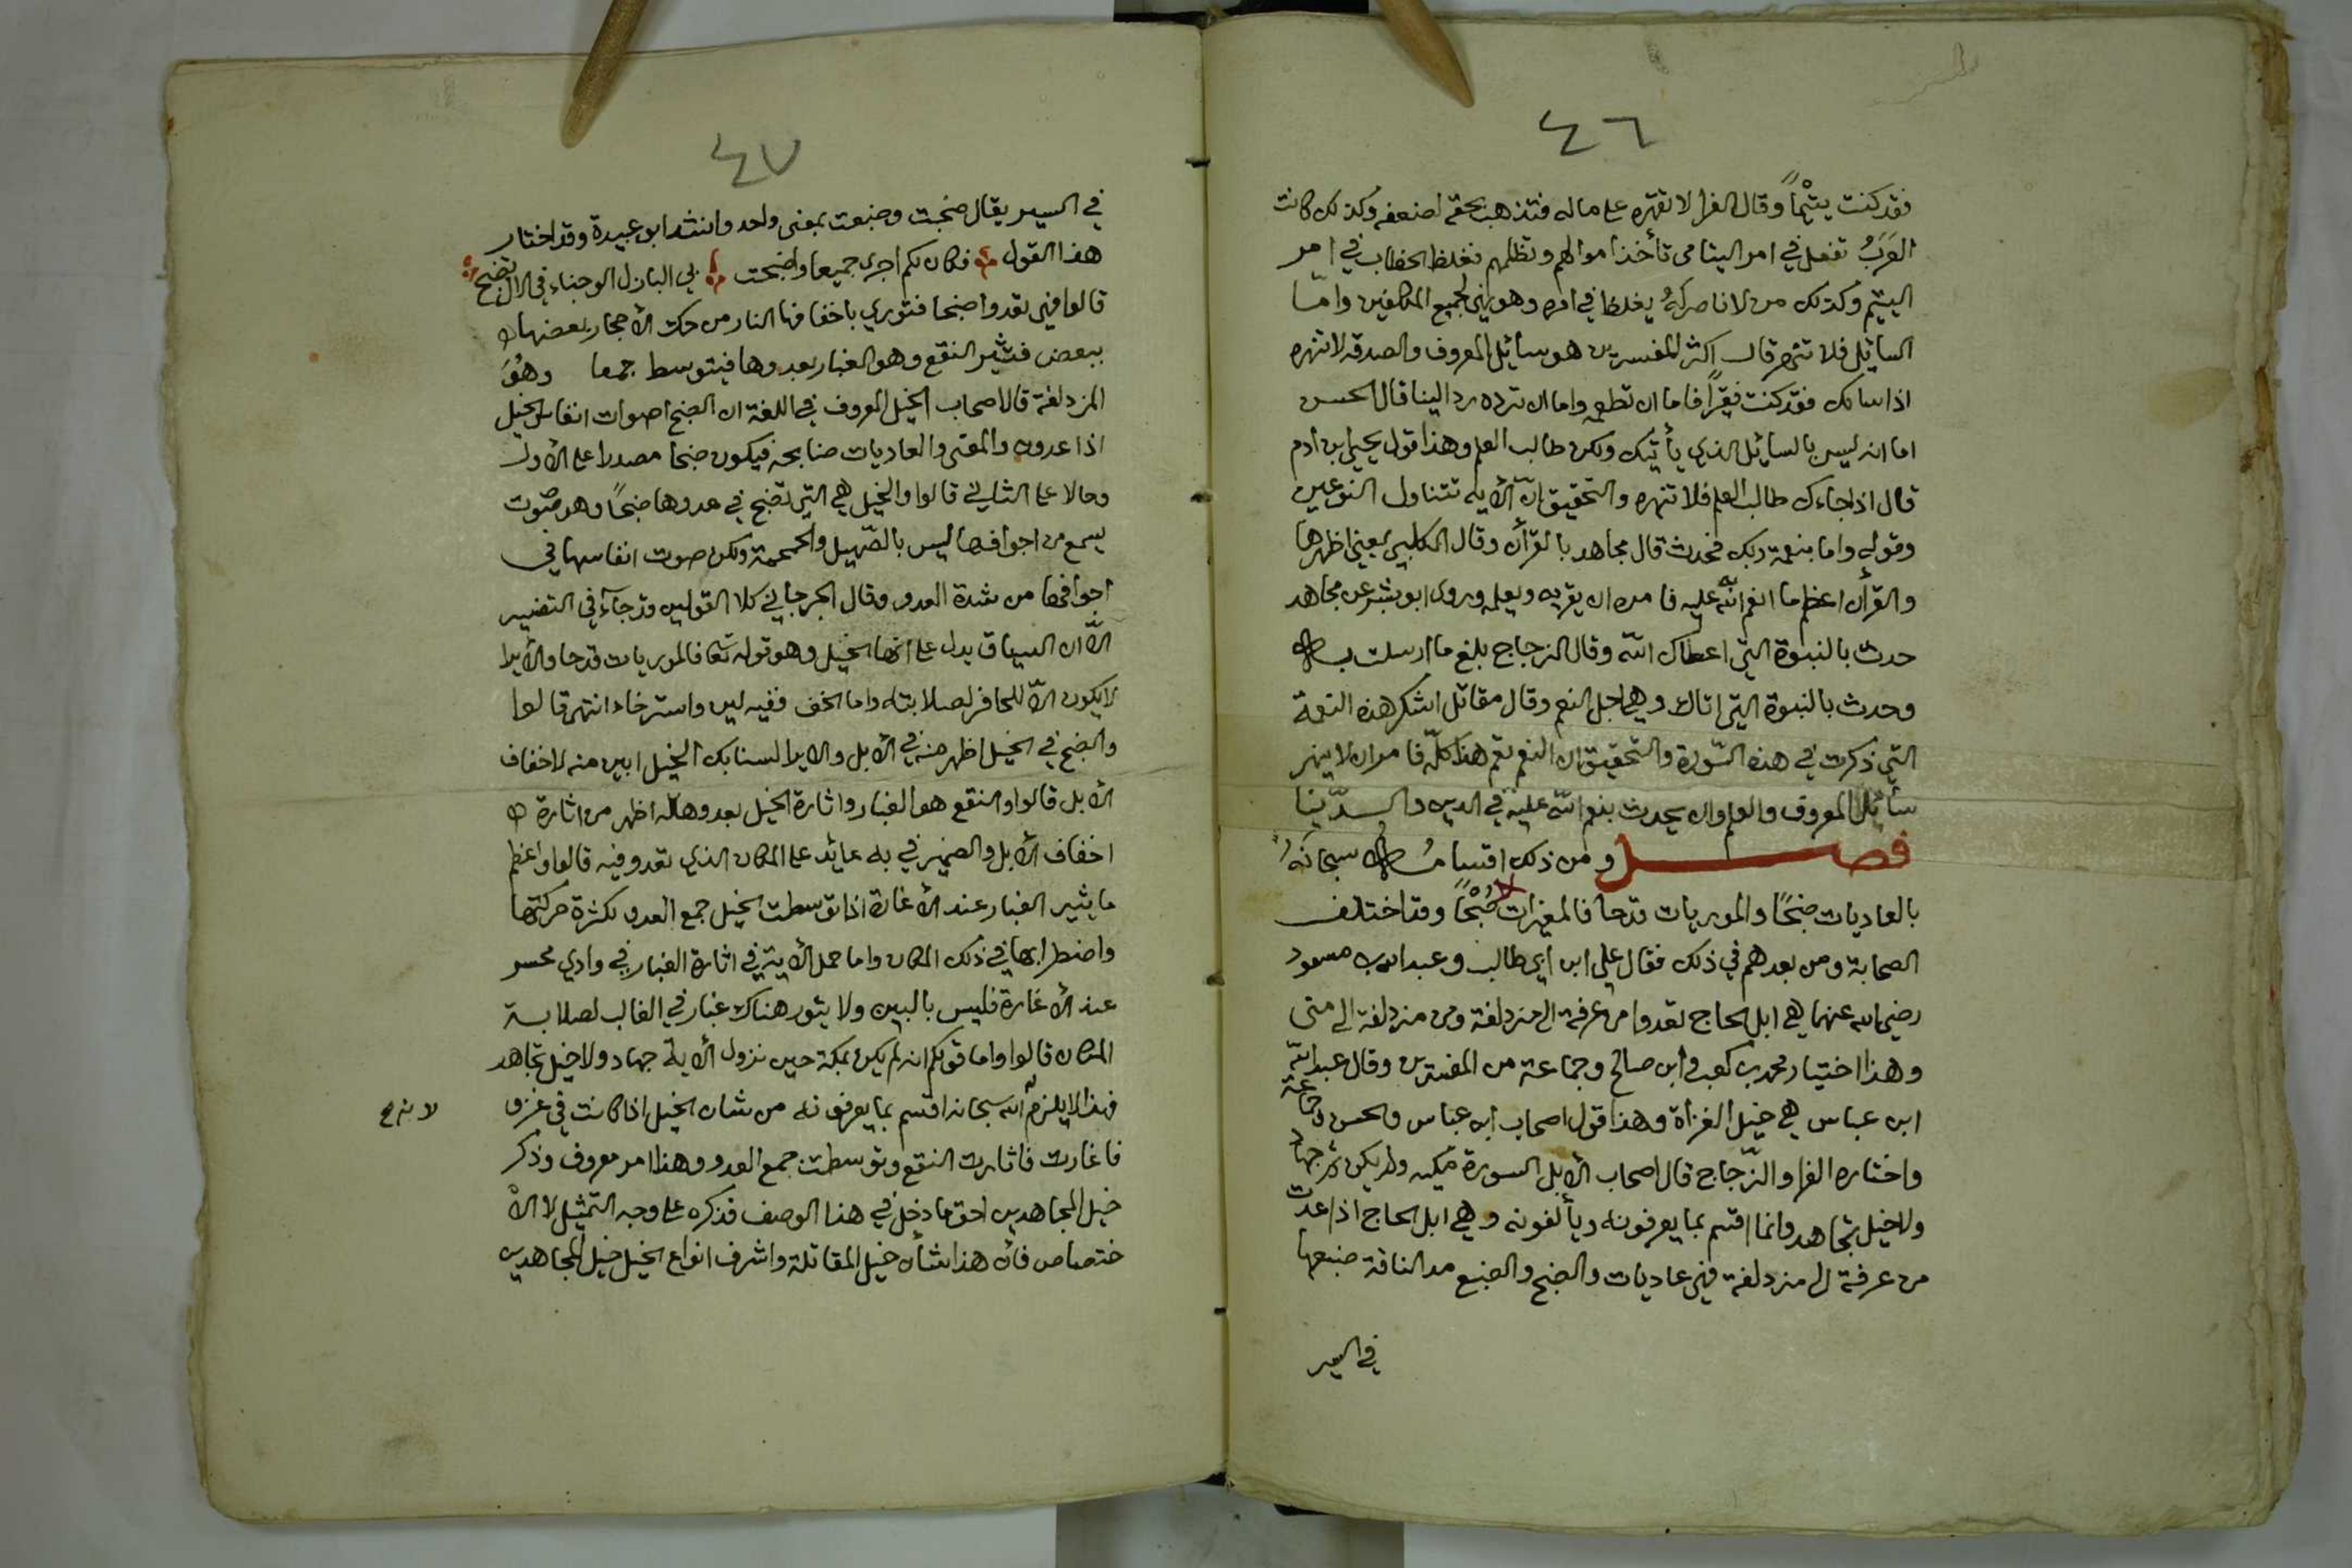 ٤٦
فقد كنت يتيْمًا وقال الفرا لا تقهره على ماله فتذهب بحقه لضعفه وكذلك كانت
العَرَبُ تفعل في امر اليتامى تأخذ اموالهم وتظلمهم فغلظ الخطاب في امر
اليتيم وكذلك من لا ناصر لهُ يغلظ في امره وهو نهي لجميع المكلفين وامّا
السائل فلا تنهر قال اكثر المفسرين هو سائل المعروف والصدقه لا تنهره
اذا سالك فقد كنت فقيرًا فاما ان تطعمه واما ان ترده ردا لينا قال الحسن
اما انه ليس بالسائل الذي يأتيك ولكن طالب العلم وهذا قول يحيى ابن ادم
قال اذا جاءك طالب العلم فلا تنهره والتحقيق انّ الآيه تتناول النوعين
وقوله واما بنعمة ربك فحدث قال مجاهد بالقرأن وقال الكلبي يعني اظهرها
والقرأن اعظم ما انعم الله عليه فامره ان يقريه ويعلمه وروى ابو بشر عن مجاهد
حدث بالنبوة التي اعطاك الله وقال الزجاج بلغ ما ارسلت به
وحدث بالنبوة التي اتاك وهي اجل النعم وقال مقاتل اشكر هذه النعمة
التي ذكرت في هذه السّورة والتحقيق ان النعم تعم هذا كلّه فامر ان لا ينهر
سائل المعروف والعلم وان يحدث بنعم الله عليه في الدين والدّينا
فصل ومن ذلك اقسامُه سبحانَهُ
بالعاديات ضبحًا والموريات قدحا فالمغيرات صُبْحًا وقد اختلف
الصحابة ومن بعدهم في ذلك فقال علي ابن ابي طالب وعبد الله بن مسعود
رضي الله عنهما هي ابل الحاج تعدوا من عرفة الى مزدلفة ومن مزدلفة الى منى
وهذا اختيار محمد بن كعب وابن صالح وجماعة من المفسرين وقال عبد الله
ابن عباس هي خيل الغزاة وهذا قول اصحاب ابن عباس والحسن وجماعة
واختاره الفرا والزّجاج قال اصحاب الابل السورة مكيه ولم يكن ثم جهاد
ولا خيل تجاهد وانما اقسم بما يعرفونه ويألفونه وهي ابل الحاج اذا عدت
من عرفة الى مزدلفة فهي عاديات والضبح والضبع مد الناقة ضبعها
في السير
٤٧
في السير يقال ضبحت وضبعت بمعنى واحد وانشد ابو عبيدة وقد اختار
هذا القول فكان لكم اجري جميعا واضبحت بي البازل الوجناء في الال تضبح
قالوا فهي تعدوا ضبحا فتوري باخفافها النار من حك الأحجار بعضها
ببعض فتثير النقع وهو الغبار بعدوها فيتوسط جمعا وهُوَ
المزدلفة قال اصحاب الخيل المعروف في اللغة ان الضبح اصوات انفاس الخيل
اذا عدون والمعنى والعاديات ضابحه فيكون ضبحا مصدرا على الأول
وحالا على الثاني قالوا والخيل هي التي تضبح في عدوها ضبحًا وهو صَوت
يسمع من اجوافها ليس بالصّهيل والحمحمة ولكن صوت انفاسها في
اجوافها من شدة العدو وقال الجرجاني كلا القولين قد جآء في التفسير
الّا ان السياق يدل على انها الخيل وهو قوله تعا فالموريات قدحا والأيرا
لا يكون الّا للحافر لصلابته واما الخف ففيه لين واسترخاء انتهر قالوا
والضبح في الخيل اظهر منه في الأبل والايرا لسنابك الخيل ابين منه لاخفاف
الأبل قالوا والنقع هو الغبار واثارة الخيل بعدوها له اظهر من اثارة
اخفاف الأبل والضمير في به عايد على المكان الذي تعدو فيه قالوا واعظم
ما يثير الغبار عند الأغارة اذا توسطت الخيل جمع العدو لكثرة حركتها
واضطرابها في ذلك المكان واما حمل الأية في اثارة الغبار في وادي محسر
عند الأغارة فليس بالبين ولا يثور هناك غبار في الغالب لصلابة
المكان قالوا واما قولكم انه لم يكن بمكة حين نزول الأية جهاد ولا خيل تجاهد
فهذا لا يلزم لأنه سبحانه اقسم بما يعرفونه من شان الخيل اذا كانت في غزو
فاغارت فاثارت النقع وتوسطت جمع العدو وهذا امر معروف وذكر
خيل المجاهدين احق ما دخل في هذا الوصف فذكره على وجه التمثيل لا الأ
ختصاص فأن هذا شأن خيل المقاتلة واشرف انواع الخيل خيل المجاهدين